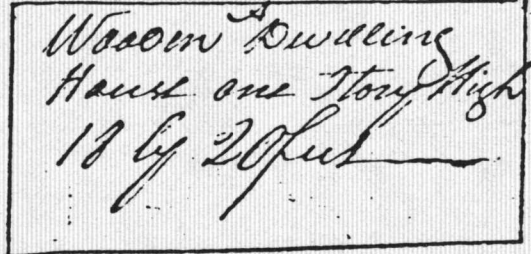 Wooden Dwelling
House one Story High
18 by 20 feet